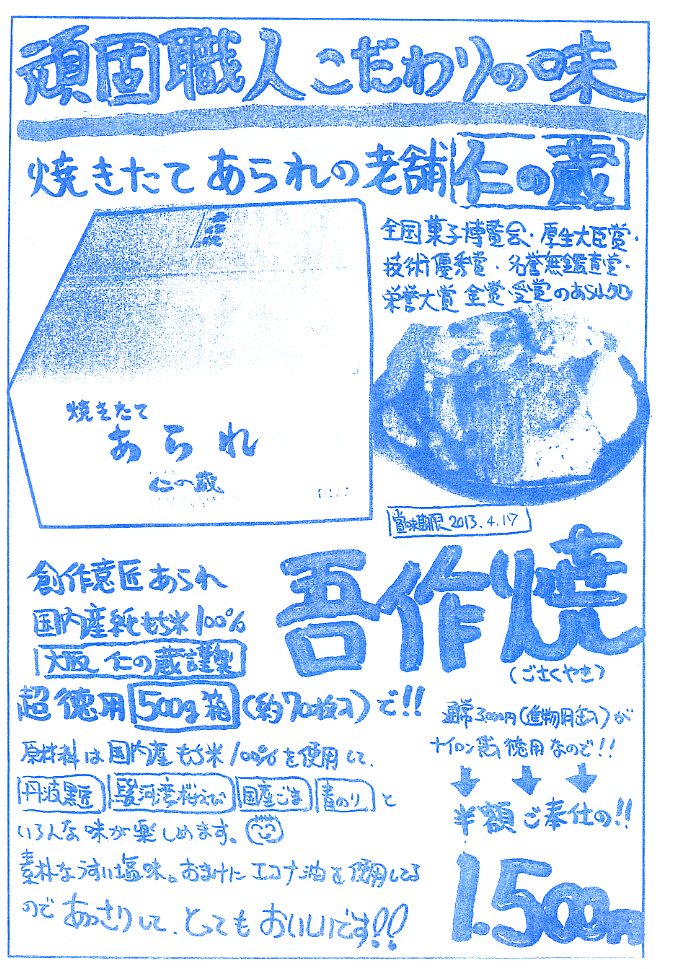 頑固職人こだわりの味
焼きたてあられの老舗 仁の蔵
全国菓子博覧会・厚生大臣賞・
技術優秀賞・名誉無鑑査賞・
栄誉大賞 金賞・受賞のあられの
焼きたて
あられ
仁の蔵
賞味期限 2013.4.17
創作意匠あられ
国内産純もち米100%
大阪 仁の蔵謹製
吾作焼
(ごさくやき)
超徳用 500g箱 (約70枚入)で!!
通常3000円(進物用缶入)が
ナイロン袋 徳用なので!!
半額ご奉仕の!!
1.500円
原材料は国内産もち米100%を使用して、
丹波黒豆 駿河湾桜えび 国産ごま 青のり と
いろんな味が楽しめます。
素朴なうすい塩味。おまけにエコナ油を使用してる
のであっさりして、とってもおいしいです!!